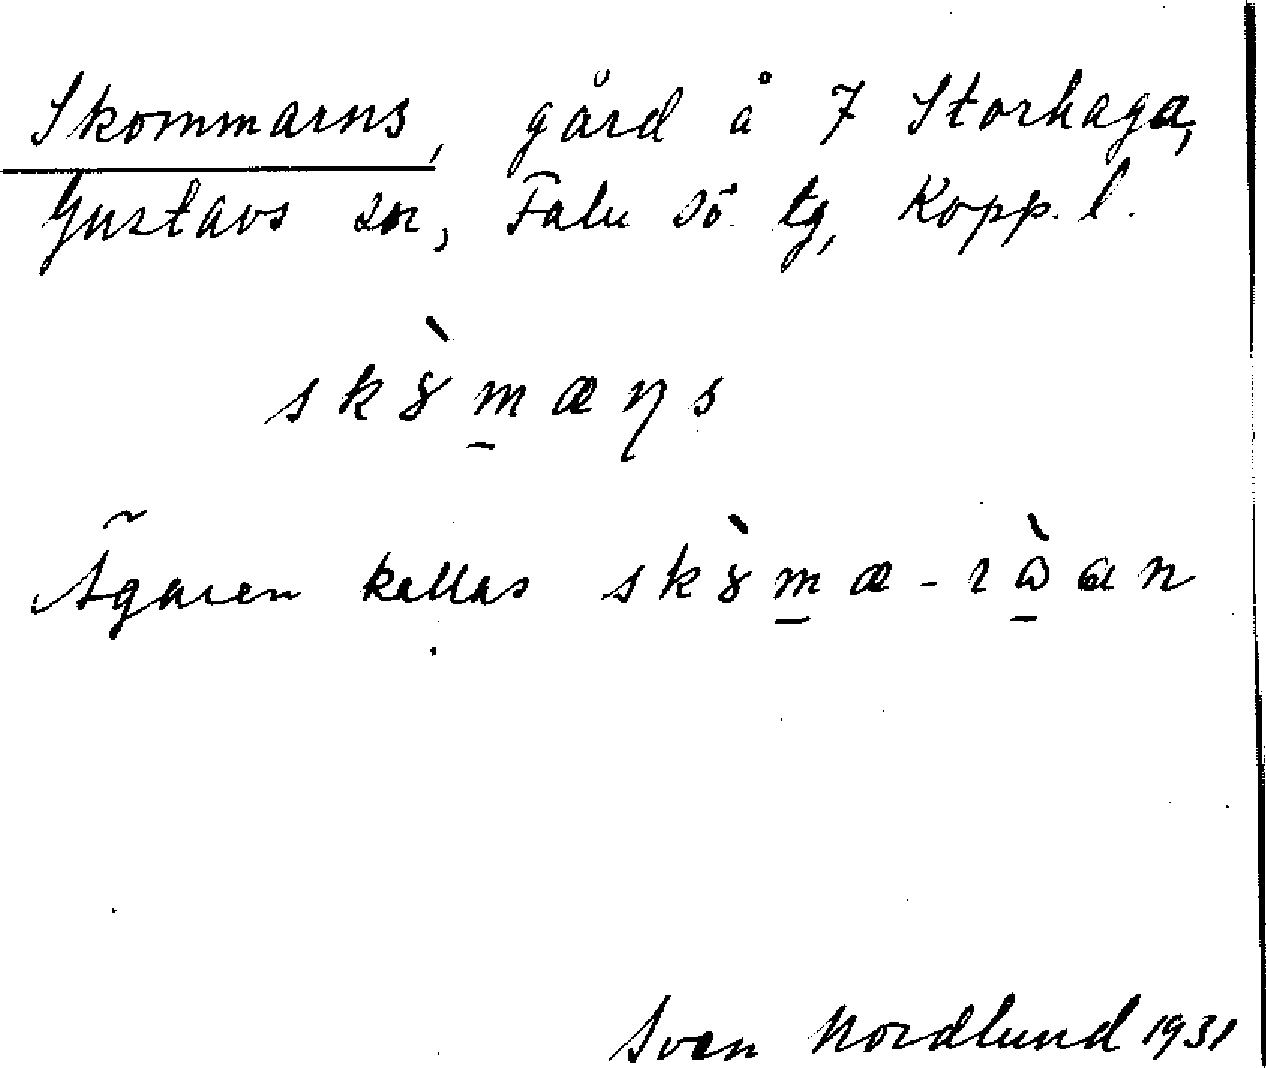 Skommarns, gård å 7 Storhaga,
Gustavs sn, Falu sö. tg, Kopp. l.
skȣ̀m̠æŋs
Ägaren kallas skȣ̀m̠æ-ɿɷ̠̀an
Sven Nordlund 1931